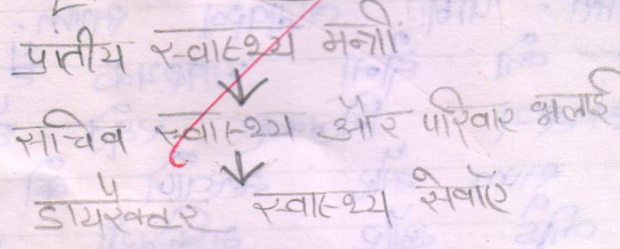 प्रांतीय स्वास्थ्य मन्त्री
↓
सचिव स्वास्थ्य और परिवार भलाई
↓
डायरेक्टर स्वास्थ्य सेवाएँ